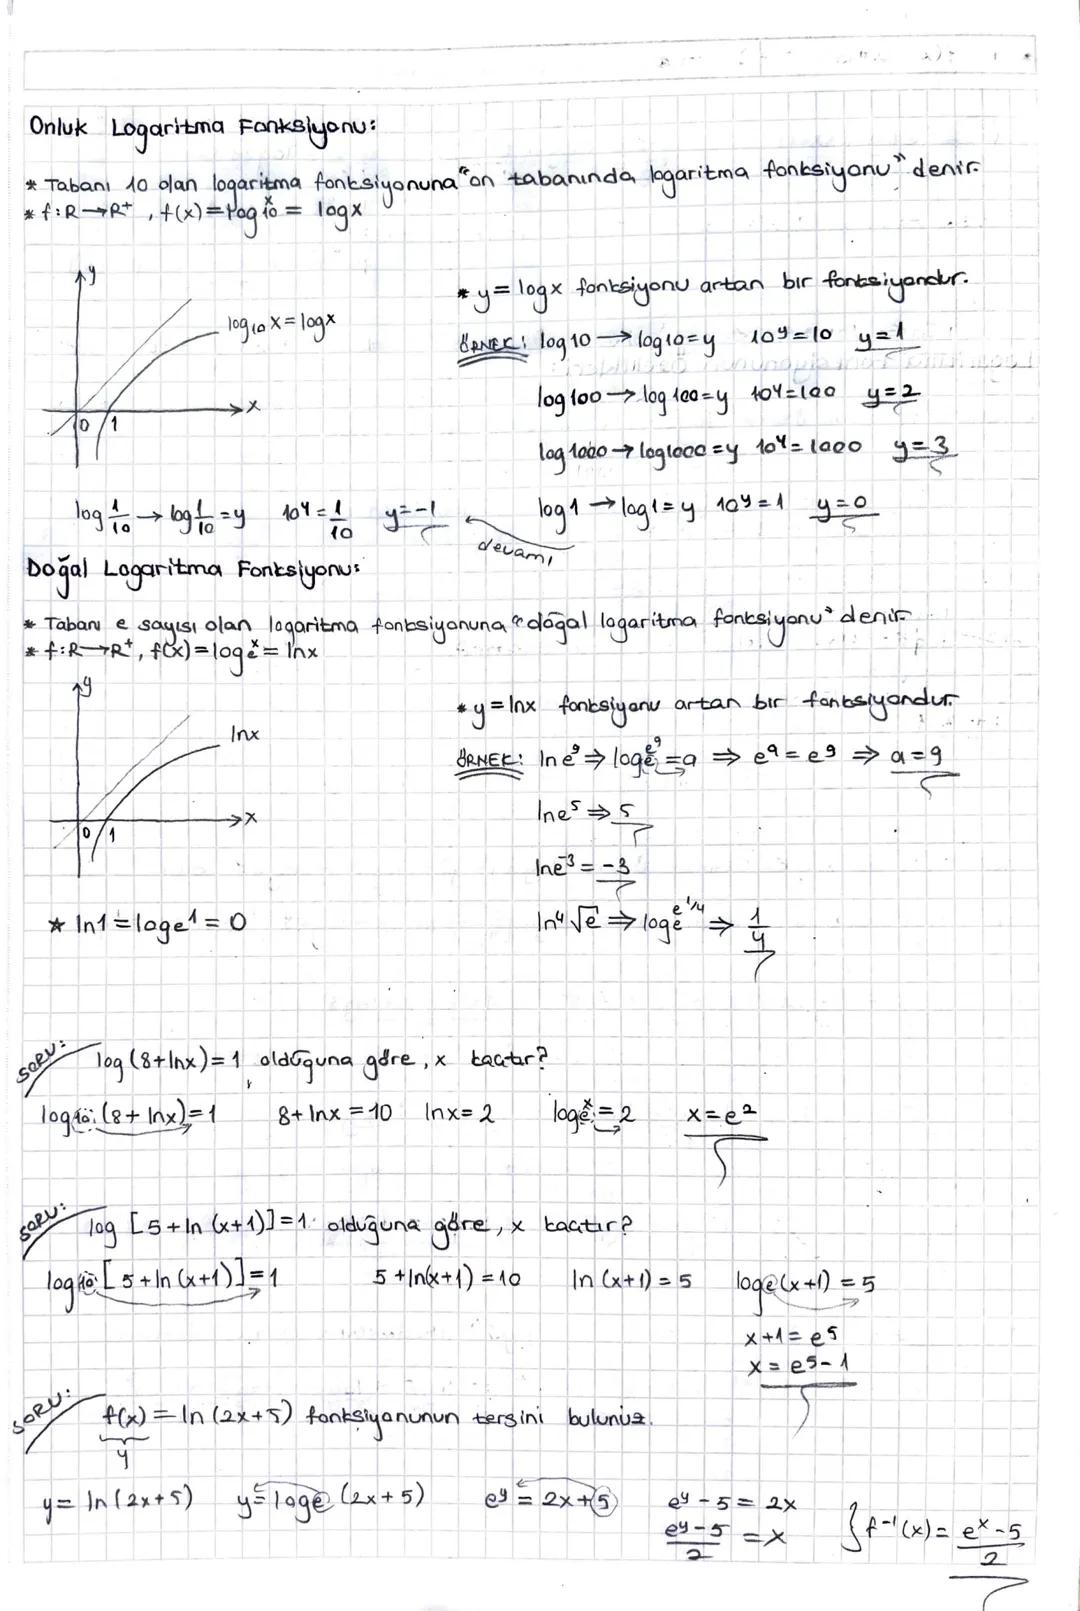 Onluk Logaritma Fonksiyonu:
* Tabanı 10 olan logaritma fonksiyonuna "on tabanında logaritma fonksiyonu" denir.
* f:R→R⁺, f(x)=log₁₀ˣ = logx
y
log₁₀x=logx
x
0 1
* y=logx fonksiyonu artan bir fonksiyondur.
ÖRNEK: log10 → log10=y 10ʸ=10 y=1
log100 → log100=y 10ʸ=100 y=2
log1000 → log1000=y 10ʸ=1000 y=3
log1 → log1=y 10ʸ=1 y=0
devamı
log 1/10 → log 1/10 =y 10ʸ=1/10 y=-1
Doğal Logaritma Fonksiyonu:
* Tabanı e sayısı olan logaritma fonksiyonuna "doğal logaritma fonksiyonu" denir
* f:R→R⁺, f(x)=logₑˣ= lnx
y
lnx
x
0 1
* y=lnx fonksiyonu artan bir fonksiyondur.
ÖRNEK: lne⁹ ⇒ logₑe⁹=a ⇒ eᵃ=e⁹ ⇒ a=9
lne⁵ ⇒ 5
lne⁻³ = -3
ln⁴√e ⇒ logₑe^1/4 ⇒ 1/4
* ln1=loge¹=0
SORU: log(8+lnx)=1 olduğuna göre, x kaçtır?
log₁₀(8+lnx)=1 8+lnx=10 lnx=2 logₑˣ=2 x=e²
SORU: log [5+ln(x+1)]=1 olduğuna göre, x kaçtır?
log₁₀[5+ln(x+1)]=1 5+ln(x+1)=10 ln(x+1)=5 logₑ(x+1)=5
x+1=e⁵
x=e⁵-1
SORU: f(x)=ln(2x+5) fonksiyonunun tersini bulunuz.
y
y=ln(2x+5) y=logₑ(2x+5) eʸ=2x+5 eʸ-5=2x
(eʸ-5)/2=x } f⁻¹(x)=(eˣ-5)/2